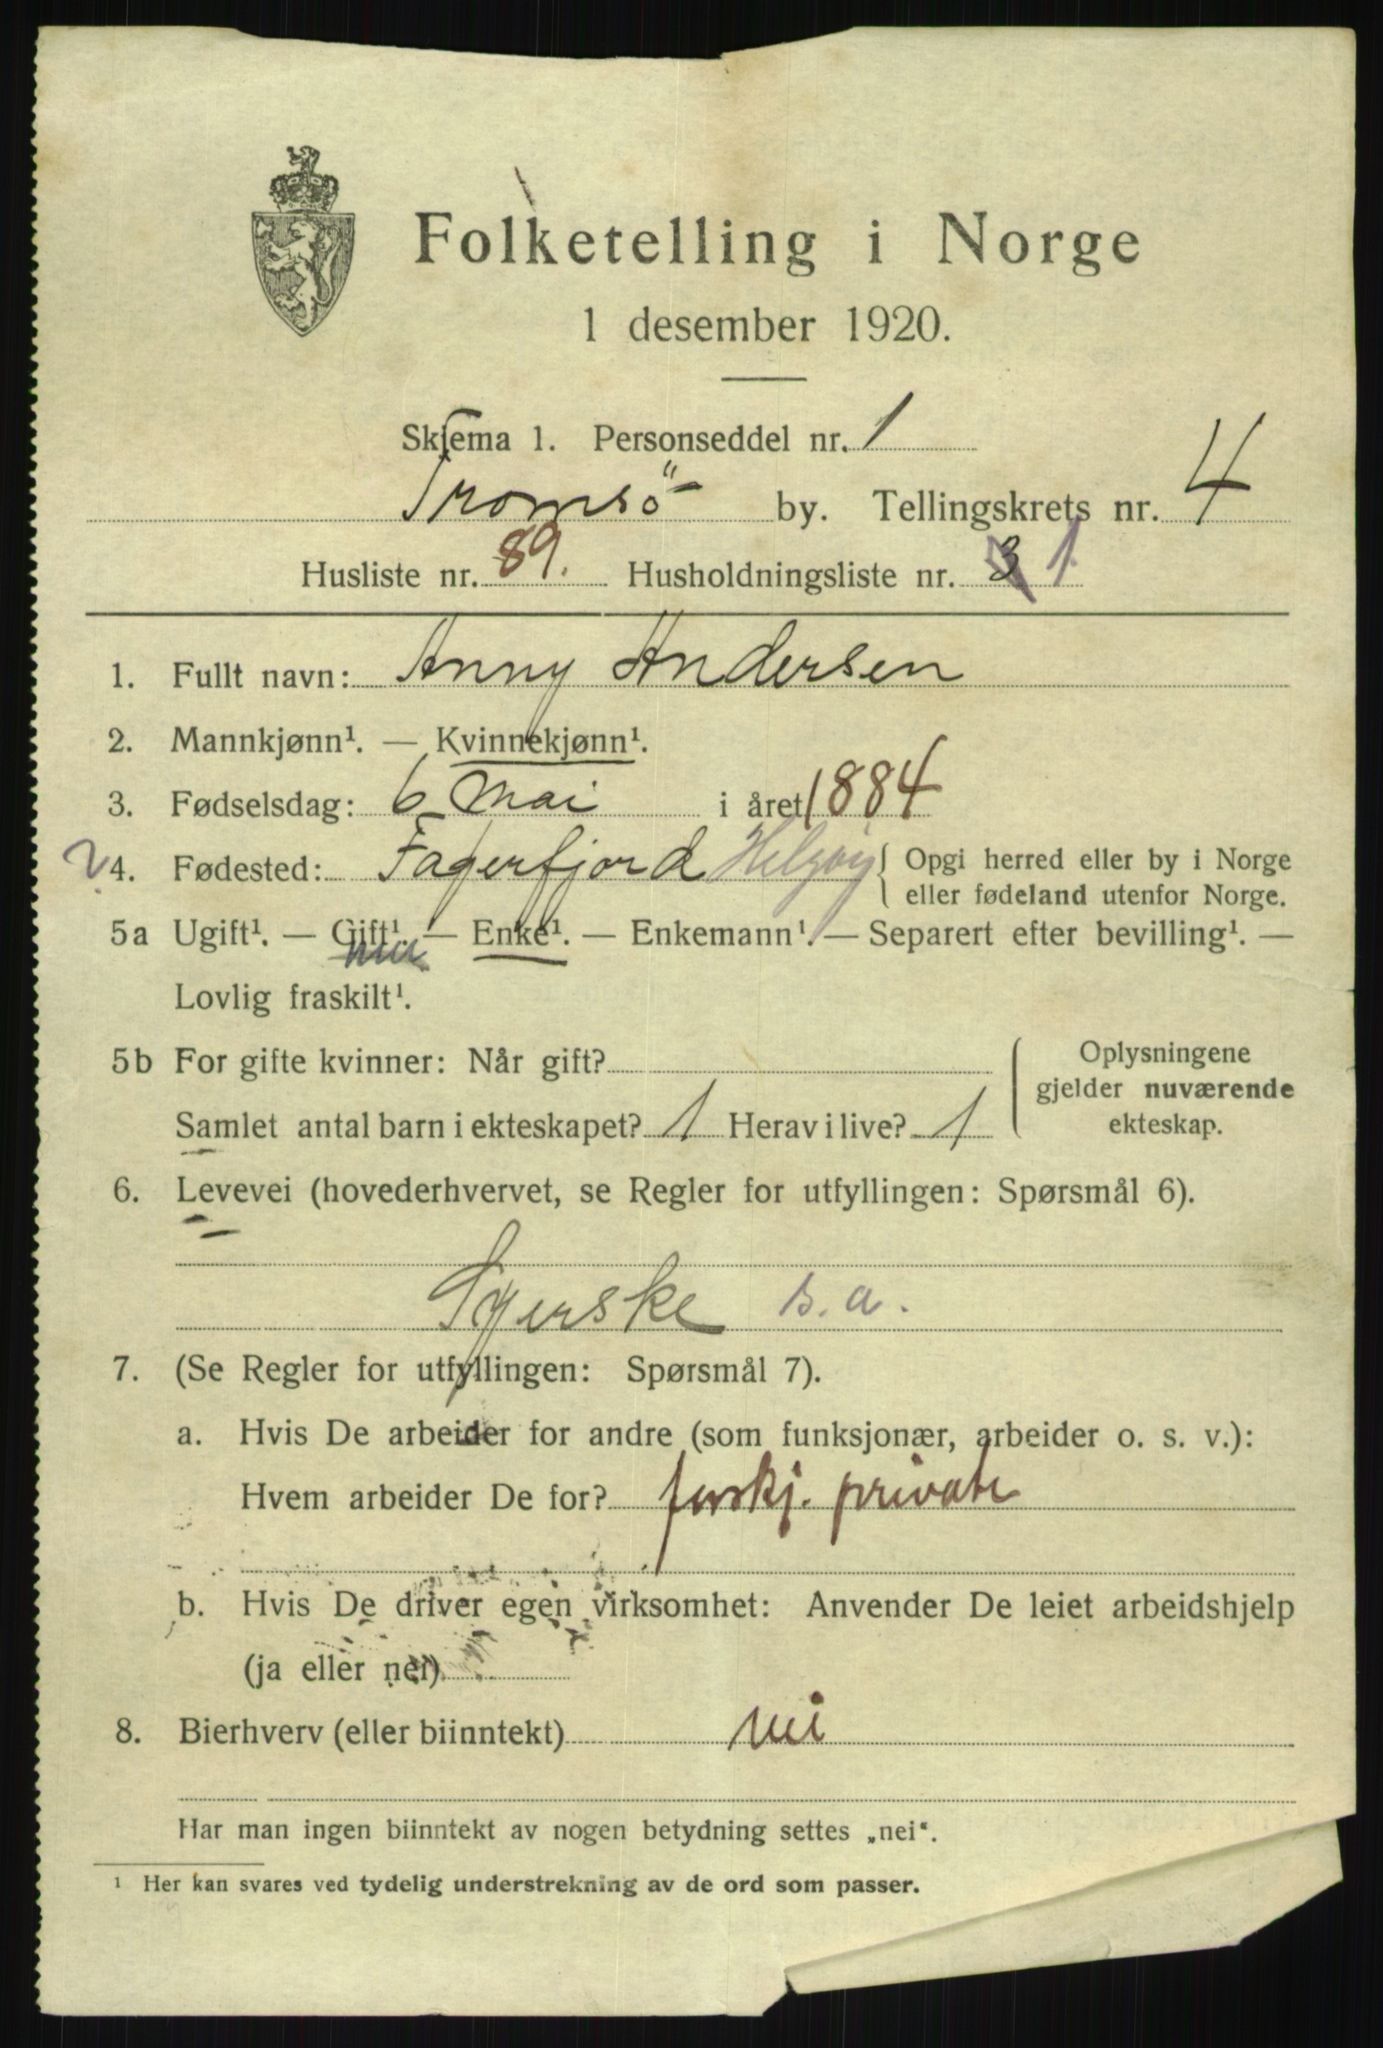 Folketelling i Norge
1 desember 1920.
Skjema 1. Personseddel nr. 1
Tromsö by. Tellingskrets nr. 4
Husliste nr. 89. Husholdningsliste nr. 3 1
1. Fullt navn: Anny Andersen
2. Mannkjønn¹. — Kvinnekjønn¹.
3. Fødselsdag: 6 Mai i året 1884
4. Fødested: Fagerfjord Helgøy { Opgi herred eller by i Norge
eller fødeland utenfor Norge.
5a Ugift¹. — Gift¹. — Enke¹. — Enkemann¹. — Separert efter bevilling¹. —
Lovlig fraskilt¹.
5b For gifte kvinner: Når gift?
Samlet antal barn i ekteskapet? 1 Herav i live? 1
{ Oplysningene
gjelder nuværende
ekteskap.
6. Levevei (hovederhvervet, se Regler for utfyllingen: Spørsmål 6).
Syerske s.a.
7. (Se Regler for utfyllingen: Spørsmål 7).
a. Hvis De arbeider for andre (som funksjonær, arbeider o. s. v.):
Hvem arbeider De for? forskj. private
b. Hvis De driver egen virksomhet: Anvender De leiet arbeidshjelp
(ja eller nei)
8. Bierhverv (eller biinntekt) nei
Har man ingen biinntekt av nogen betydning settes „nei“.
¹ Her kan svares ved tydelig understrekning av de ord som passer.